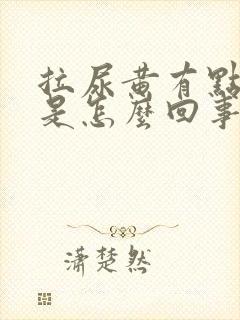 拉尿黄有點
是怎麼回事
潇楚然